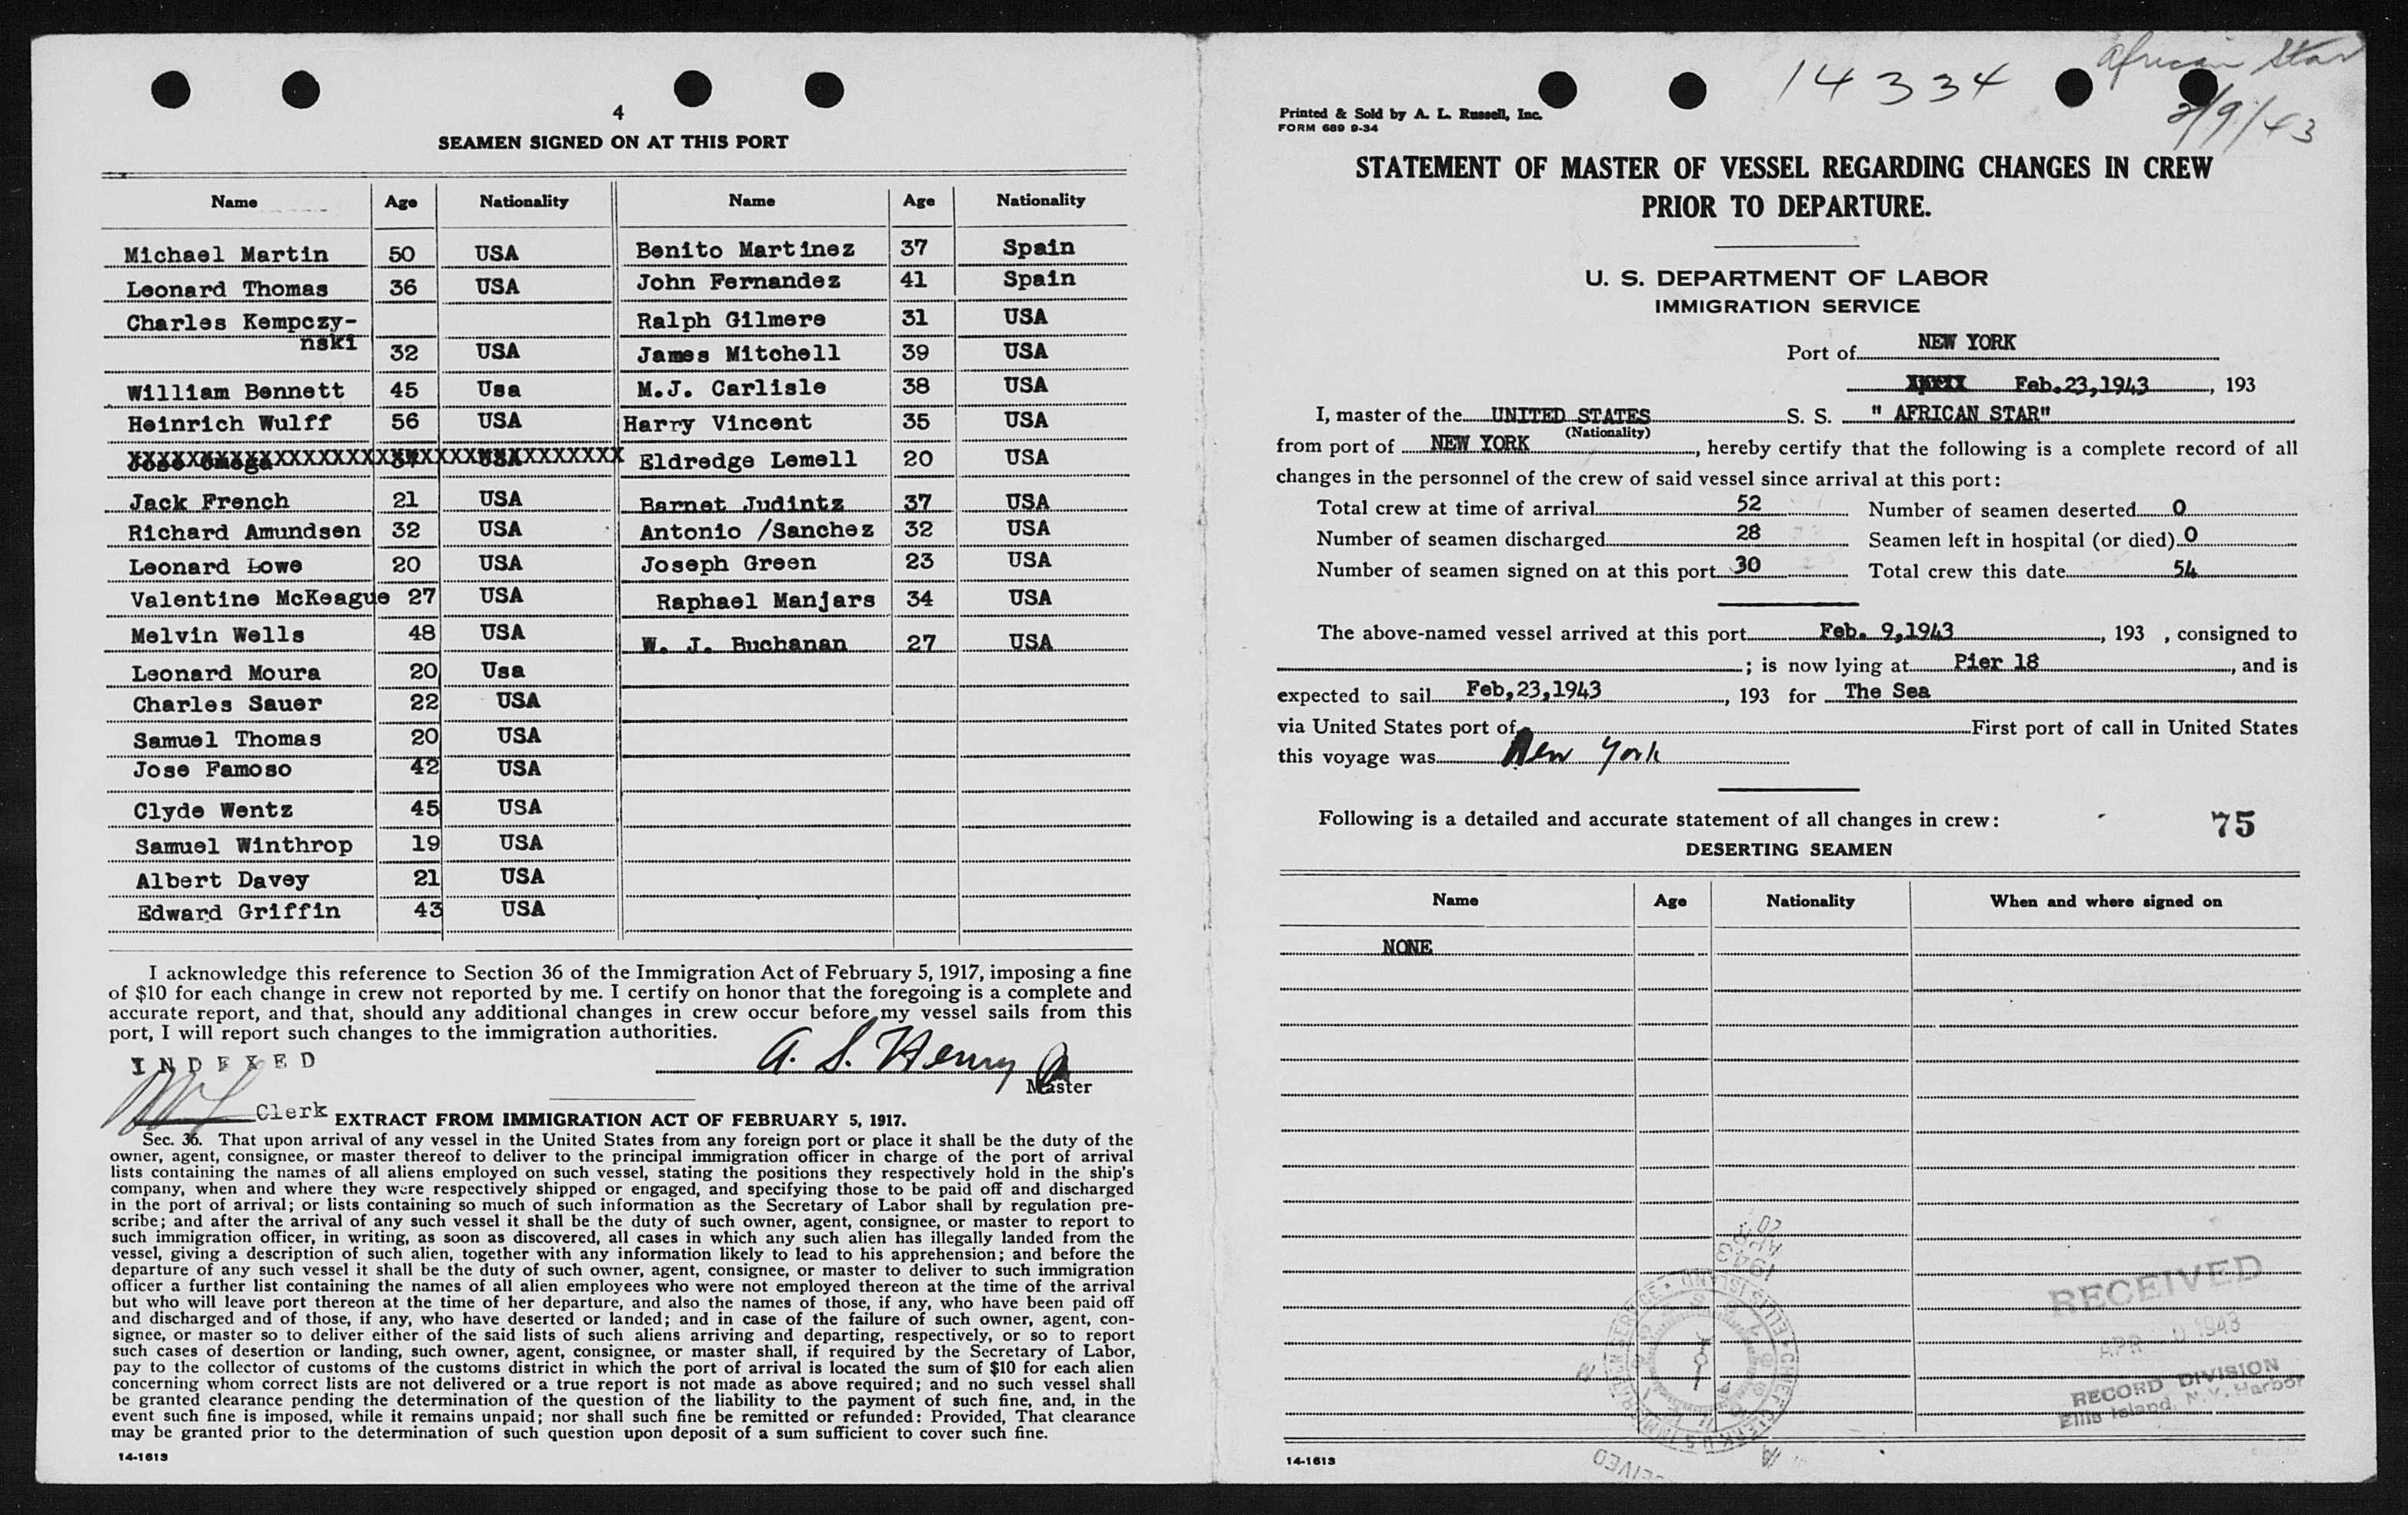 4
SEAMEN SIGNED ON AT THIS PORT
Name Age Nationality Name Age Nationality
Michael Martin 50 USA Benito Martinez 37 Spain
Leonard Thomas 36 USA John Fernandez 41 Spain
Charles Kempczy- Ralph Gilmere 31 USA
nski 32 USA James Mitchell 39 USA
William Bennett 45 Usa M.J. Carlisle 38 USA
Heinrich Wulff 56 USA Harry Vincent 35 USA
Eldredge Lemell 20 USA
Jack French 21 USA Barnet Judintz 37 USA
Richard Amundsen 32 USA Antonio /Sanchez 32 USA
Leonard Lowe 20 USA Joseph Green 23 USA
Valentine McKeague 27 USA Raphael Manjars 34 USA
Melvin Wells 48 USA W. J. Buchanan 27 USA
Leonard Moura 20 Usa
Charles Sauer 22 USA
Samuel Thomas 20 USA
Jose Famoso 42 USA
Clyde Wentz 45 USA
Samuel Winthrop 19 USA
Albert Davey 21 USA
Edward Griffin 43 USA
I acknowledge this reference to Section 36 of the Immigration Act of February 5, 1917, imposing a fine
of $10 for each change in crew not reported by me. I certify on honor that the foregoing is a complete and
accurate report, and that, should any additional changes in crew occur before my vessel sails from this
port, I will report such changes to the immigration authorities.
INDEXED
A. S. Henry
Master
Clerk
EXTRACT FROM IMMIGRATION ACT OF FEBRUARY 5, 1917.
Sec. 36. That upon arrival of any vessel in the United States from any foreign port or place it shall be the duty of the
owner, agent, consignee, or master thereof to deliver to the principal immigration officer in charge of the port of arrival
lists containing the names of all aliens employed on such vessel, stating the positions they respectively hold in the ship's
company, when and where they were respectively shipped or engaged, and specifying those to be paid off and discharged
in the port of arrival; or lists containing so much of such information as the Secretary of Labor shall by regulation pre-
scribe; and after the arrival of any such vessel it shall be the duty of such owner, agent, consignee, or master to report to
such immigration officer, in writing, as soon as discovered, all cases in which any such alien has illegally landed from the
vessel, giving a description of such alien, together with any information likely to lead to his apprehension; and before the
departure of any such vessel it shall be the duty of such owner, agent, consignee, or master to deliver to such immigration
officer a further list containing the names of all alien employees who were not employed thereon at the time of the arrival
but who will leave port thereon at the time of her departure, and also the names of those, if any, who have been paid off
and discharged and of those, if any, who have deserted or landed; and in case of the failure of such owner, agent, con-
signee, or master so to deliver either of the said lists of such aliens arriving and departing, respectively, or so to report
such cases of desertion or landing, such owner, agent, consignee, or master shall, if required by the Secretary of Labor,
pay to the collector of customs of the customs district in which the port of arrival is located the sum of $10 for each alien
concerning whom correct lists are not delivered or a true report is not made as above required; and no such vessel shall
be granted clearance pending the determination of the question of the liability to the payment of such fine, and, in the
event such fine is imposed, while it remains unpaid; nor shall such fine be remitted or refunded: Provided, That clearance
may be granted prior to the determination of such question upon deposit of a sum sufficient to cover such fine.
14-1613
14334
African Star
2/9/43
Printed & Sold by A. L. Russell, Inc.
FORM 689 9-34
STATEMENT OF MASTER OF VESSEL REGARDING CHANGES IN CREW
PRIOR TO DEPARTURE.
U. S. DEPARTMENT OF LABOR
IMMIGRATION SERVICE
Port of NEW YORK
Feb.23,1943, 193
I, master of the UNITED STATES S. S. " AFRICAN STAR"
(Nationality)
from port of NEW YORK, hereby certify that the following is a complete record of all
changes in the personnel of the crew of said vessel since arrival at this port:
Total crew at time of arrival 52 Number of seamen deserted 0
Number of seamen discharged 28 Seamen left in hospital (or died) 0
Number of seamen signed on at this port 30 Total crew this date 54
The above-named vessel arrived at this port Feb. 9,1943, 193 , consigned to
; is now lying at Pier 18, and is
expected to sail Feb,23,1943, 193 for The Sea
via United States port of First port of call in United States
this voyage was New York
Following is a detailed and accurate statement of all changes in crew: 75
DESERTING SEAMEN
Name Age Nationality When and where signed on
NONE
RECEIVED
APR 1943
RECORD DIVISION
Ellis Island, N.Y. Harbor
14-1613